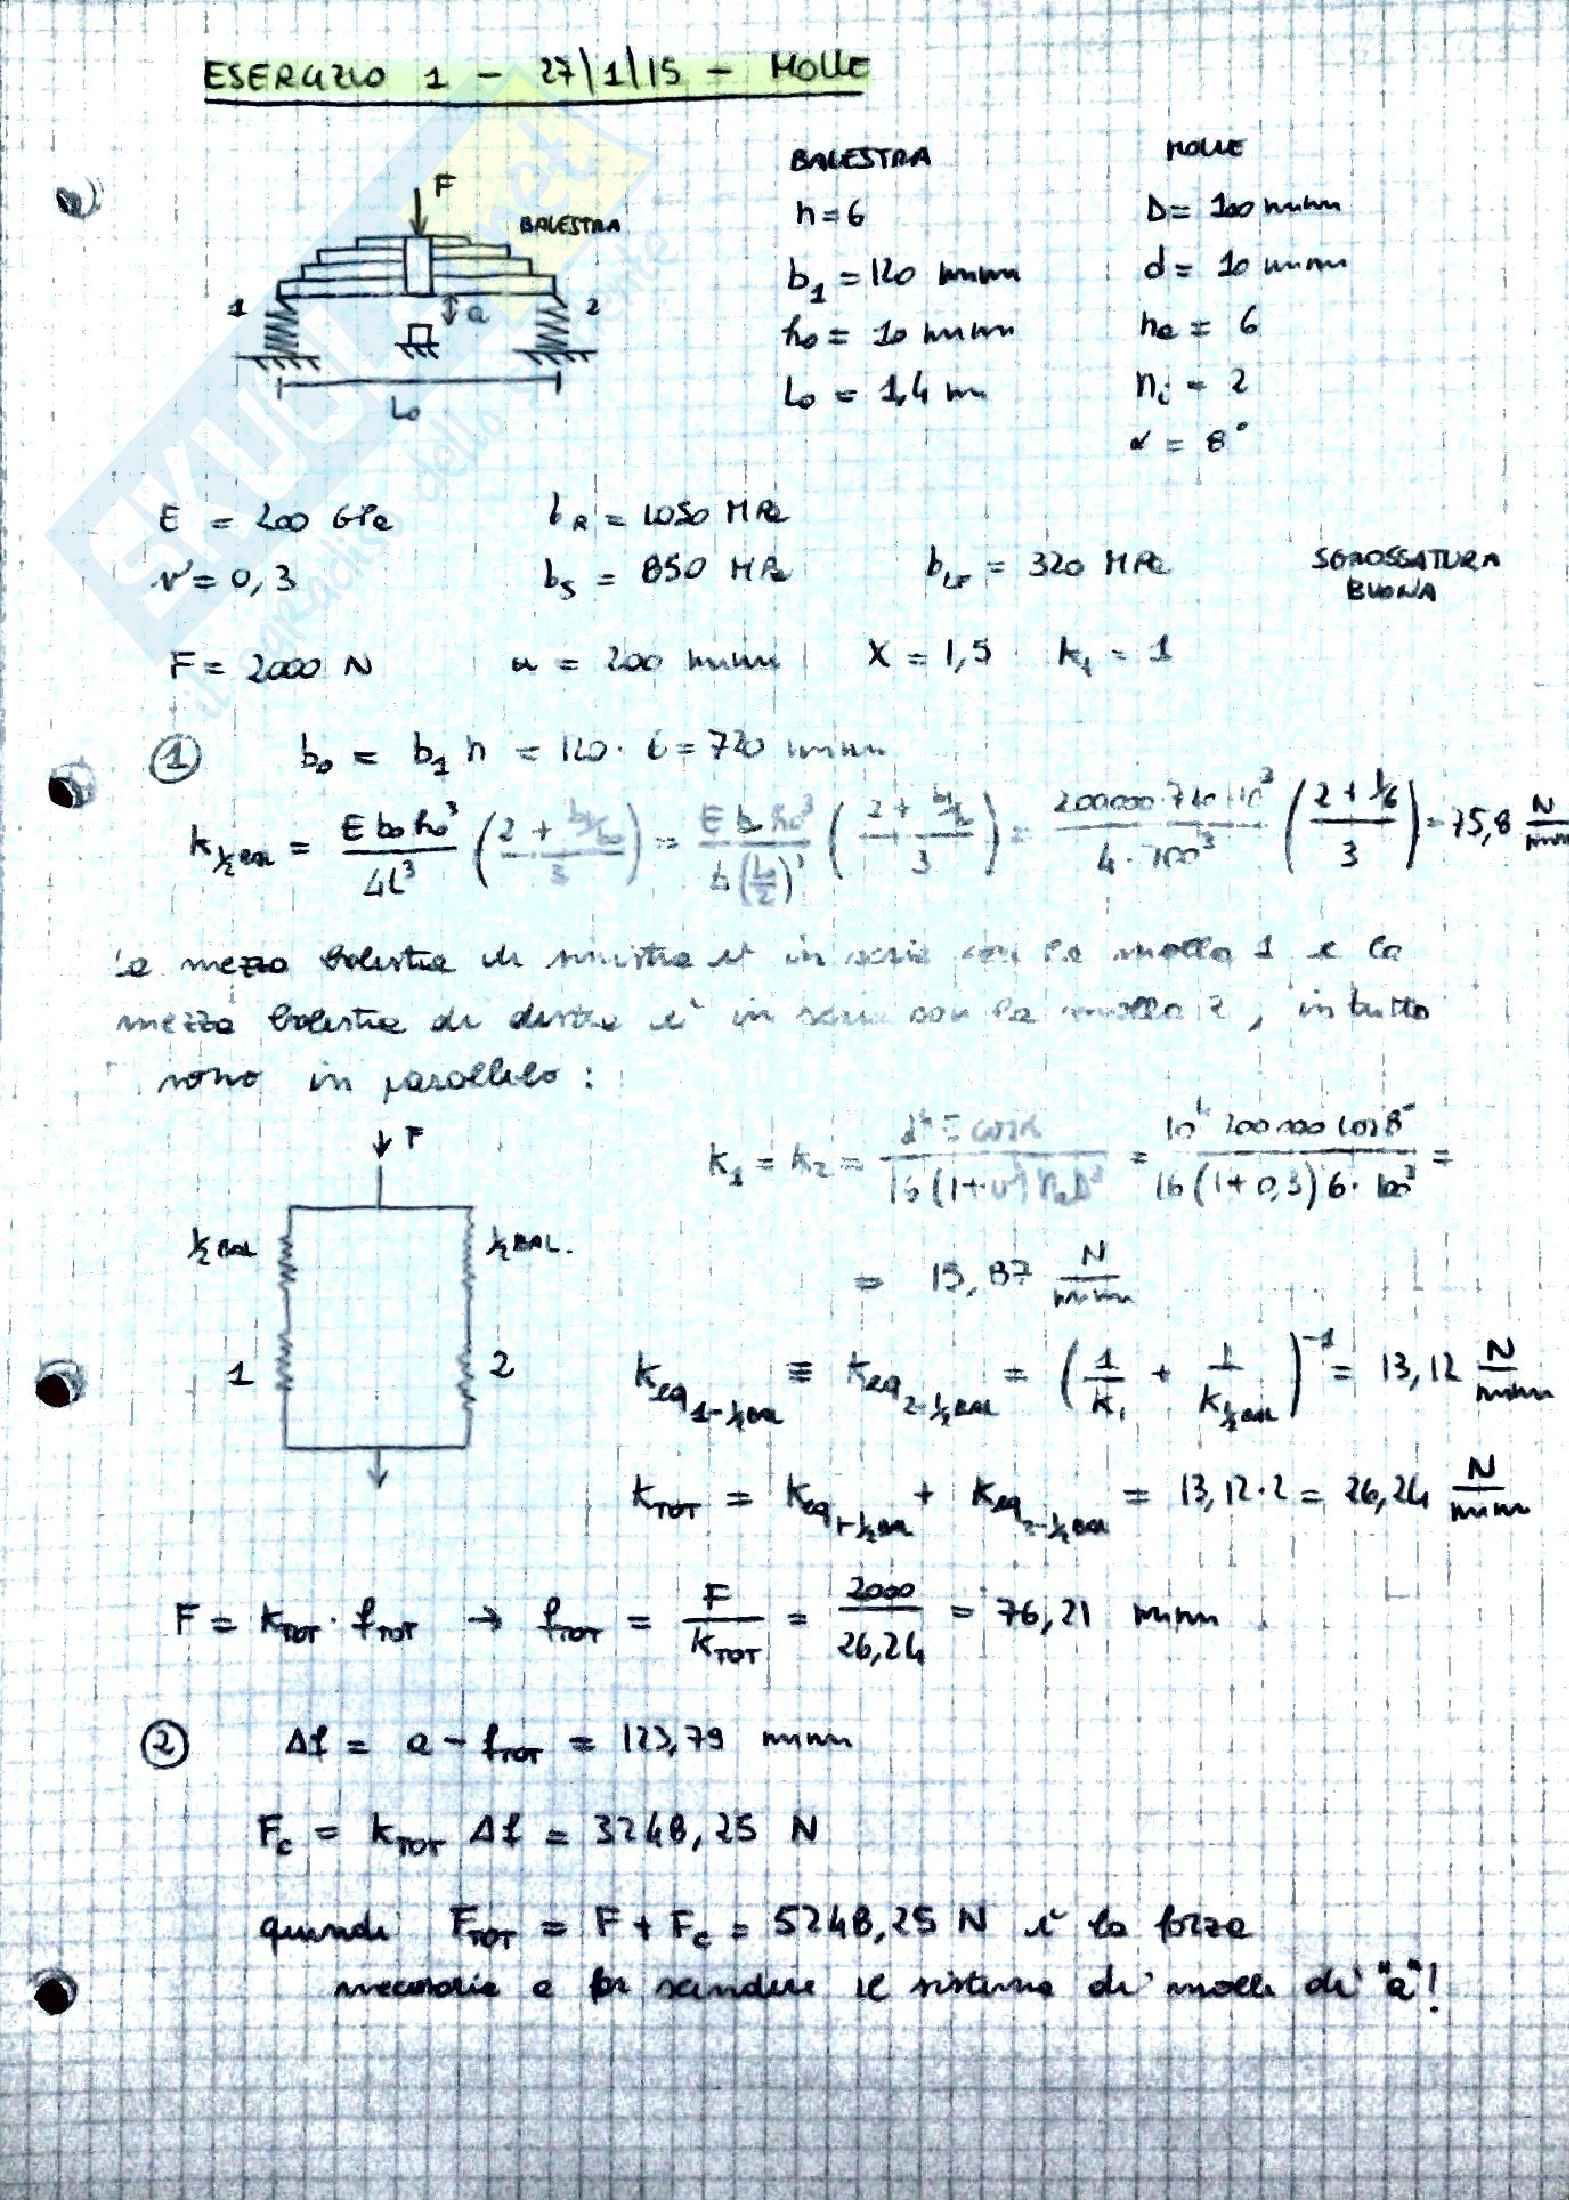 ESERCIZIO 1 - 27/1/15 - MOLLE
BALESTRA
n = 6
b₁ = 120 mm
h₀ = 10 mm
L₀ = 1,4 m
MOLLE
D = 100 mm
d = 10 mm
nₑ = 6
nᵢ = 2
α = 8°
F
BALESTRA
1
a
2
L₀
E = 200 GPa
ν = 0,3
σ_R = 1050 MPa
σ_S = 850 MPa
σ_LF = 320 MPa
SGROSSATURA
BUONA
F = 2000 N a = 200 mm X = 1,5 k_t = 1
① b₀ = b₁ n = 120 · 6 = 720 mm
k_½BAL = E b₀ h₀³ / 4L³ ((2 + b₁/b₀) / 3) = E b₀ h₀³ / 4(L₀/2)³ ((2 + b₁/b₀) / 3) = 200000 · 720 · 10³ / 4 · 700³ ((2 + 1/6) / 3) = 75,8 N/mm
La mezza balestra di sinistra è in serie con la molla 1 e la
mezza balestra di destra è in serie con la molla 2, in tutto
sono in parallelo:
F
½ BAL
½ BAL.
1
2
k₁ = k₂ = d⁴ E cosα / 16 (1+ν) nₑ D³ = 10⁴ 200000 cos 8° / 16 (1+0,3) 6 · 100³ =
= 15,87 N/mm
k_eq 1-½BAL ≡ k_eq 2-½BAL = (1/k₁ + 1/k_½BAL)⁻¹ = 13,12 N/mm
k_TOT = k_eq 1-½BAL + k_eq 2-½BAL = 13,12 · 2 = 26,24 N/mm
F = k_TOT · f_TOT → f_TOT = F / k_TOT = 2000 / 26,24 = 76,21 mm
② Δf = a - f_TOT = 123,79 mm
F_c = k_TOT Δf = 3248,25 N
quindi F_TOT = F + F_c = 5248,25 N è la forza
necessaria a far scendere il sistema di molle di "a"!